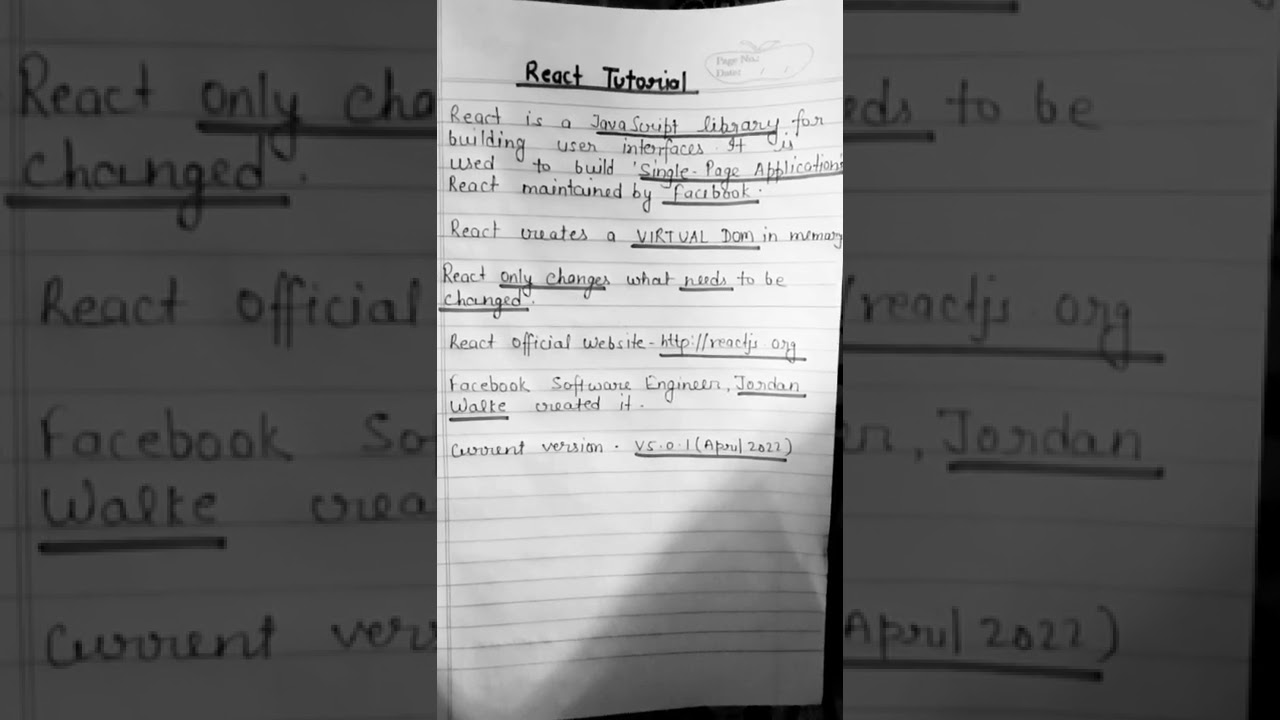 Page No.:
Date: / /
React Tutorial
React is a JavaScript library for
building user interfaces. It is
used to build 'Single-Page Application'
React maintained by facebook.
React creates a VIRTUAL DOM in memory
React only changes what needs to be
changed.
React official website - http://reactjs.org
Facebook Software Engineer, Jordan
Walke created it.
Current version - V5.0.1 (April 2022)